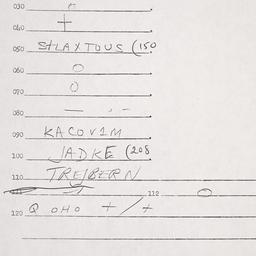 030
040 +
050 SHLAXTOUS (150
060 O
070 O
080 —
090 KACOVIM
100 JADKE (208
110 TREIBERN
112 O
120 Q OHO + / +